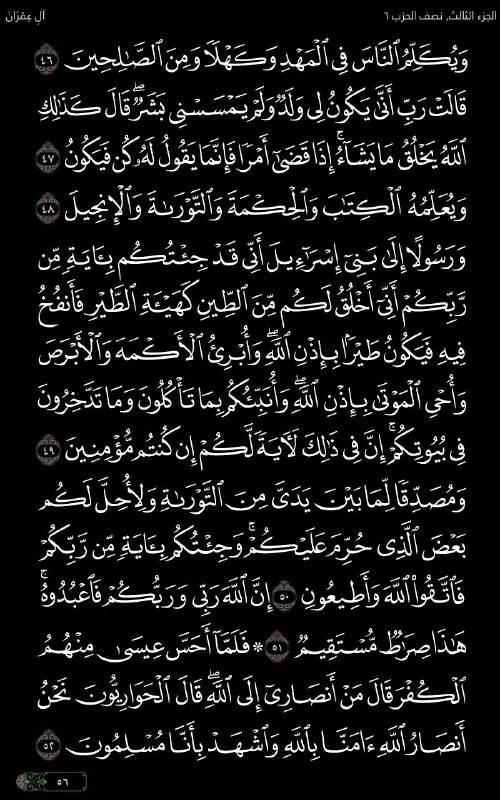 الجزء الثالث, نصف الحزب ٦
آل عِمْرَان
وَيُكَلِّمُ ٱلنَّاسَ فِي ٱلْمَهْدِ وَكَهْلًا وَمِنَ ٱلصَّٰلِحِينَ ٤٦
قَالَتْ رَبِّ أَنَّىٰ يَكُونُ لِي وَلَدٌ وَلَمْ يَمْسَسْنِي بَشَرٌۖ قَالَ كَذَٰلِكِ
ٱللَّهُ يَخْلُقُ مَا يَشَآءُۚ إِذَا قَضَىٰٓ أَمْرًا فَإِنَّمَا يَقُولُ لَهُۥ كُن فَيَكُونُ ٤٧
وَيُعَلِّمُهُ ٱلْكِتَٰبَ وَٱلْحِكْمَةَ وَٱلتَّوْرَىٰةَ وَٱلْإِنجِيلَ ٤٨
وَرَسُولًا إِلَىٰ بَنِيٓ إِسْرَٰٓءِيلَ أَنِّي قَدْ جِئْتُكُم بِـَٔايَةٍ مِّن
رَّبِّكُمْ أَنِّيٓ أَخْلُقُ لَكُم مِّنَ ٱلطِّينِ كَهَيْـَٔةِ ٱلطَّيْرِ فَأَنفُخُ
فِيهِ فَيَكُونُ طَيْرًۢا بِإِذْنِ ٱللَّهِۖ وَأُبْرِئُ ٱلْأَكْمَهَ وَٱلْأَبْرَصَ
وَأُحْيِ ٱلْمَوْتَىٰ بِإِذْنِ ٱللَّهِۖ وَأُنَبِّئُكُم بِمَا تَأْكُلُونَ وَمَا تَدَّخِرُونَ
فِي بُيُوتِكُمْۚ إِنَّ فِي ذَٰلِكَ لَأٓيَةً لَّكُمْ إِن كُنتُم مُّؤْمِنِينَ ٤٩
وَمُصَدِّقًا لِّمَا بَيْنَ يَدَيَّ مِنَ ٱلتَّوْرَىٰةِ وَلِأُحِلَّ لَكُم
بَعْضَ ٱلَّذِي حُرِّمَ عَلَيْكُمْۚ وَجِئْتُكُم بِـَٔايَةٍ مِّن رَّبِّكُمْ
فَٱتَّقُوا۟ ٱللَّهَ وَأَطِيعُونِ ٥٠ إِنَّ ٱللَّهَ رَبِّي وَرَبُّكُمْ فَٱعْبُدُوهُۚ
هَٰذَا صِرَٰطٌ مُّسْتَقِيمٌ ٥١ ۞ فَلَمَّآ أَحَسَّ عِيسَىٰ مِنْهُمُ
ٱلْكُفْرَ قَالَ مَنْ أَنصَارِيٓ إِلَى ٱللَّهِۖ قَالَ ٱلْحَوَارِيُّونَ نَحْنُ
أَنصَارُ ٱللَّهِ ءَامَنَّا بِٱللَّهِ وَٱشْهَدْ بِأَنَّا مُسْلِمُونَ ٥٢
٥٦